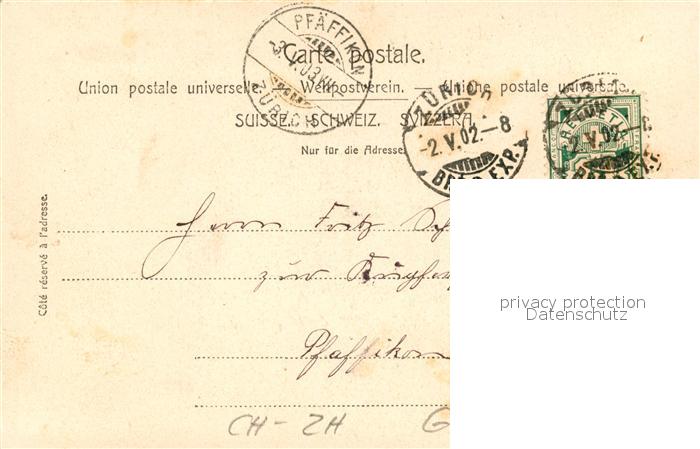 PFÄFFIKON
-3.V.03.VII-
ZÜRICH
Carte postale.
Union postale universelle. — Weltpostverein. — Unione postale universale.
SUISSE. SCHWEIZ. SVIZZERA.
Nur für die Adresse.
ZÜRICH
-2.V.02.-8
BRF.EXP.
HELVETIA
2.V.02.-8
Côté réservé à l'adresse.
Herrn Fritz Sch
zur
Pfäffikon
CH - ZH G
privacy protection
Datenschutz